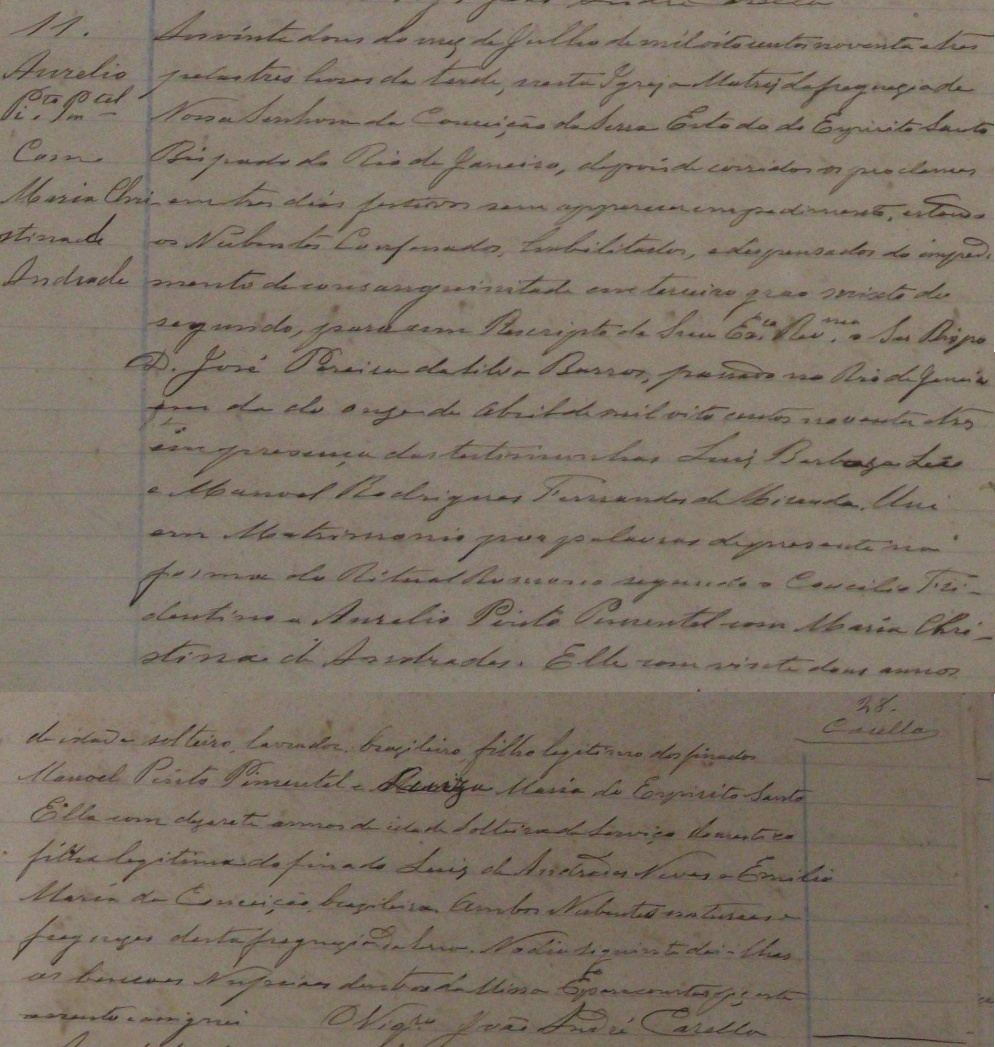 11.
Aurelio
Pi.to Pm.tel
Com
Maria Chri-
stina de
Andrade
Aos vinte dous do mez de Julho de mil oito centos noventa e tres
pelas tres horas da tarde, nesta Igreja Matriz da freguezia de
Nossa Senhora da Conceição da Serra Estado do Espirito Santo
Bispado do Rio de Janeiro, depois de corridos os proclamas
em tres dias festivos sem apparecer impedimento, estando
os Nubentes Confessados, habilitados, e dispensados do impedi-
mento de consanguinitade em terceiro grao mixto do
segundo, para um Rescripto de Sua Ex.cia Rev.ma o Snr Bispo
D. José Pereira da Silva Barros, passado no Rio de Janeiro
em da do onze de Abril de mil oito centos noventa e tres
em presença das testimunhas Luiz Barboza Leão
e Manoel Rodrigues Fernandes de Miranda. Uni
em Matrimonio por palavras de presente na
forma do Ritual Romano segundo o Concilio Tri-
dentino a Aurelio Pinto Pimentel com Maria Chri-
stina d'Andrades. Elle com vinte dous annos
28.
Carella
de idade solteiro, lavrador, brazileiro, filho legitimo dos finados
Manoel Pinto Pimentel e Maria do Espirito Santo
Ella com dezesete annos de idade Solteira de Serviço domestico
filha legitima do finado Luiz d'Andrades Neves e Emilia
Maria da Conceição, brazileira. Ambos Nubentes naturaes e
freguezes desta freguezia da Serra. No dia seguinte dei-lhes
as bençoes Nupciaes dentro da Missa E para constar fiz este
assento e assignei O Vigro João André Carella